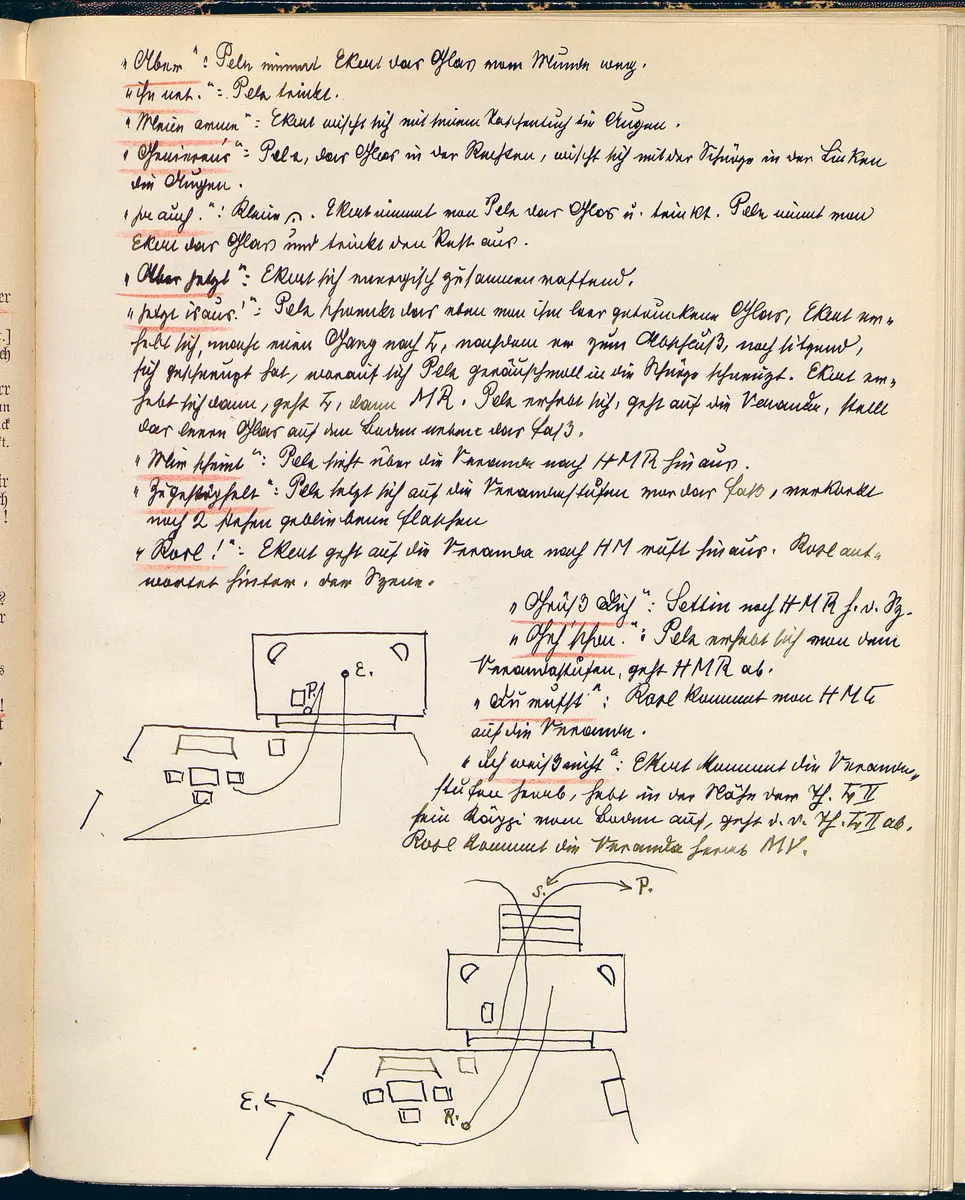 „Aber": Pela nimmt Ekart das Glas vom Munde weg.
„ihr net.": Pela trinkt.
„Meine arme": Ekart wischt sich mit seinem Taschentuch die Augen.
Pela, das Glas in der Rechten, wischt sich mit der Schürze in der Linken
die Augen.
auch.": Kleine . Ekart nimmt von Pela das Glas u. trinkt. Pela nimmt von
Ekart das Glas und trinkt den Rest aus.
„Aber jetzt": Ekart sich energisch zusammenraffend.
„jetzt is aus!": Pela schwenkt das eben von ihm leer getrunkene Glas, Ekart er=
hebt sich, macht einen Gang nach L, nachdem er zum Abschluß, noch sitzend,
sich geschneuzt hat, worauf sich Pela geräuschvoll in die Schürze schneuzt. Ekart er=
hebt sich dann, geht L, dann MR. Pela erhebt sich, geht auf die Veranda, stellt
das leere Glas auf den Boden neben das Faß.
„Mir scheint": Pela sieht über die Veranda nach HMR hinaus.
„Zugestöpselt": Pela setzt sich auf die Verandastufen vor das Faß, verkorkt
noch 2 stehen gebliebene Flaschen
„Rosl!": Ekart geht auf die Veranda nach HM ruft hinaus. Rosl ant=
wortet hinter der Szene.
„Grüß Dich": Settin nach HMR h. d. Sz.
„Geh' schon.": Pela erhebt sich von den
Verandastufen, geht HMR ab.
„Du rufst": Rosl kommt von HML
auf die Veranda.
„Ich weiß nicht": Ekart kommt die Veranda=
stufen herab, hebt in der Nähe der Th. L II
sein Käppi vom Boden auf, geht d. d. Th. L II ab.
Rosl kommt die Veranda herab MV.
P. E.
S. P.
E. R.